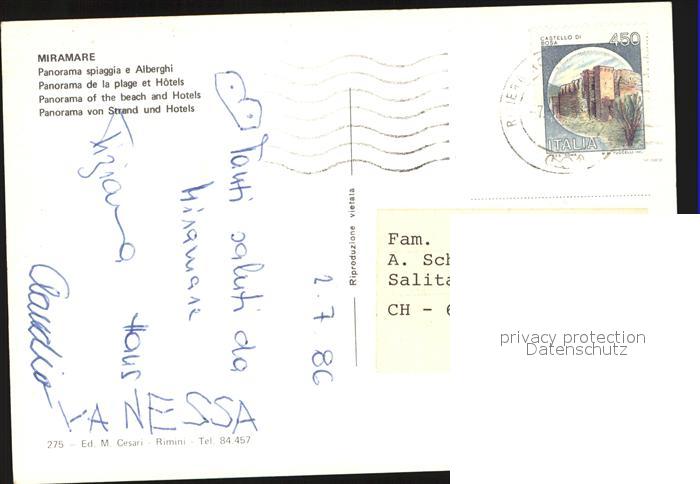 MIRAMARE
Panorama spiaggia e Alberghi
Panorama de la plage et Hôtels
Panorama of the beach and Hotels
Panorama von Strand und Hotels
Tanti saluti da
Miramare
Tiziana
Hans
Claudio
VANESSA
2.7.86
Riproduzione vietata
275 – Ed. M. Cesari - Rimini - Tel. 84.457
CASTELLO DI
BOSA
450
ITALIA
RIVIERA
Fam.
A. Sch
Salita
CH - 6
privacy protection
Datenschutz